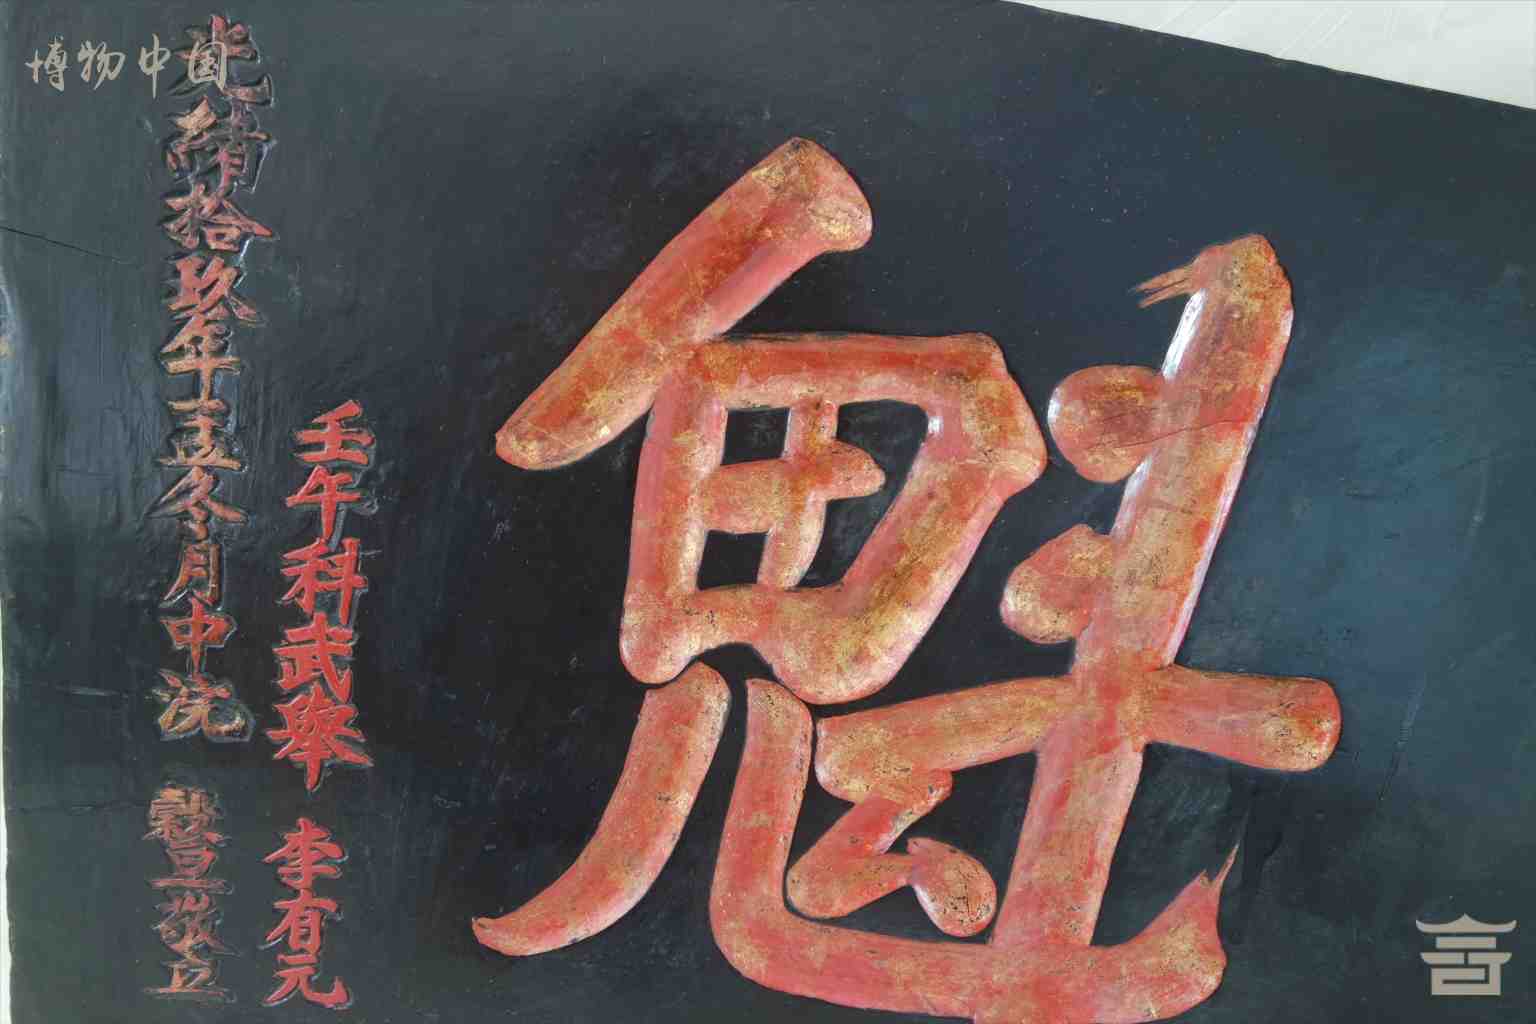 魁
壬午科武舉 李有元
光緒拾玖年孟冬月中浣 豎敬立
博物中国